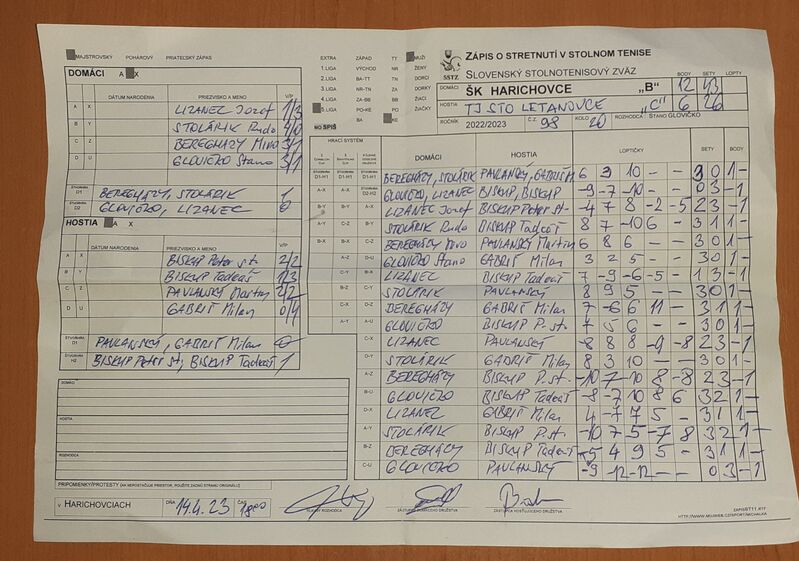 MAJSTROVSKÝ POHÁROVÝ PRIATEĽSKÝ ZÁPAS
DOMÁCI A X
DÁTUM NARODENIA PRIEZVISKO A MENO V/P
A X LIZANEC Jozef 1/3
B Y STOLÁRIK Rudo 4/0
C Z BEREGHÁZY Mivo 3/1
D U GLOVIČKO Stano 3/1
ŠTVORHRA D1 BEREGHÁZY, STOLÁRIK 1
ŠTVORHRA D2 GLOVIČKO, LIZANEC 0
HOSTIA A X
DÁTUM NARODENIA PRIEZVISKO A MENO V/P
A X BISKUP Peter st. 2/2
B Y BISKUP Tadeáš 1/3
C Z PAVLANSKÝ Martin 2/2
D U GABRIŠ Milan 0/4
ŠTVORHRA PAVLANSKÝ, GABRIŠ Milan 0
ŠTVORHRA H2 BISKUP Peter st., BISKUP Tadeáš 1
DOMÁCI
HOSTIA
ROZHODCA
PRIPOMIENKY/PROTESTY (AK NEPOSTAČUJE PRIESTOR, POUŽITE ZADNÚ STRANU ORIGINÁLU)
V HARICHOVCIACH DŇA 14.4.23 ČAS 18:00
EXTRA ZÁPAD TT MUŽI
1.LIGA VÝCHOD NR ŽENY
2.LIGA BA-TT TN DORCI
3.LIGA NR-TN ZA DORKY
4.LIGA ZA-BB BB ŽIACI
5.LIGA PO-KE PO ŽIAČKY
BA KE
NO SPIŠ
SSTZ
ZÁPIS O STRETNUTÍ V STOLNOM TENISE
SLOVENSKÝ STOLNOTENISOVÝ ZVÄZ
BODY SETY LOPTY
ŠK HARICHOVCE „B" 12 43
HOSTIA TJ STO LETANOVCE „C" 6 26
ROČNÍK 2022/2023 Č.Z. 98 KOLO 20 ROZHODCA STANO GLOVIČKO
HRACÍ SYSTÉM DOMÁCI HOSTIA LOPTIČKY SETY BODY
D1-H1 D1-H1 BEREGHÁZY, STOLÁRIK PAVLANSKÝ, GABRIŠ M 6 3 10 - - 3 0 1 -
A-X D2-H2 GLOVIČKO, LIZANEC BISKUP, BISKUP -9 -7 -10 - - 0 3 - 1
B-Y A-X LIZANEC Jozef BISKUP Peter st. -4 7 8 -2 -5 2 3 - 1
A-Y C-Z B-Y STOLÁRIK Rudo BISKUP Tadeáš 8 7 -10 6 - 3 1 1 -
B-X B-X C-Z BEREGHÁZY Mivo PAVLANSKÝ Martin 6 8 6 - - 3 0 1 -
A-Z D-U GLOVIČKO Stano GABRIŠ Milan 3 2 5 - - 3 0 1 -
C-Y B-X LIZANEC BISKUP Tadeáš 7 -9 -6 -5 - 1 3 - 1
B-Z C-Y STOLÁRIK PAVLANSKÝ 8 9 5 - - 3 0 1 -
C-X D-Z BEREGHÁZY GABRIŠ Milan 7 -6 6 11 - 3 1 1 -
A-Y A-U GLOVIČKO BISKUP P. st. 7 5 6 - - 3 0 1 -
C-X LIZANEC PAVLANSKÝ -8 8 8 -9 -8 2 3 - 1
D-Y STOLÁRIK GABRIŠ Milan 8 3 10 - - 3 0 1 -
A-Z BEREGHÁZY BISKUP P. st. -10 7 -10 8 -8 2 3 - 1
B-U GLOVIČKO BISKUP Tadeáš -8 -7 10 8 6 3 2 1 -
D-X LIZANEC GABRIŠ Milan 4 -7 7 5 - 3 1 1 -
A-Y STOLÁRIK BISKUP P. st. -10 7 5 -7 8 3 2 1 -
B-Z BEREGHÁZY BISKUP Tadeáš -5 4 9 5 - 3 1 1 -
C-U GLOVIČKO PAVLANSKÝ -9 -12 -12 - - 0 3 - 1
HLAVNÝ ROZHODCA ZÁSTUPCA DOMÁCEHO DRUŽSTVA ZÁSTUPCA HOSŤUJÚCEHO DRUŽSTVA